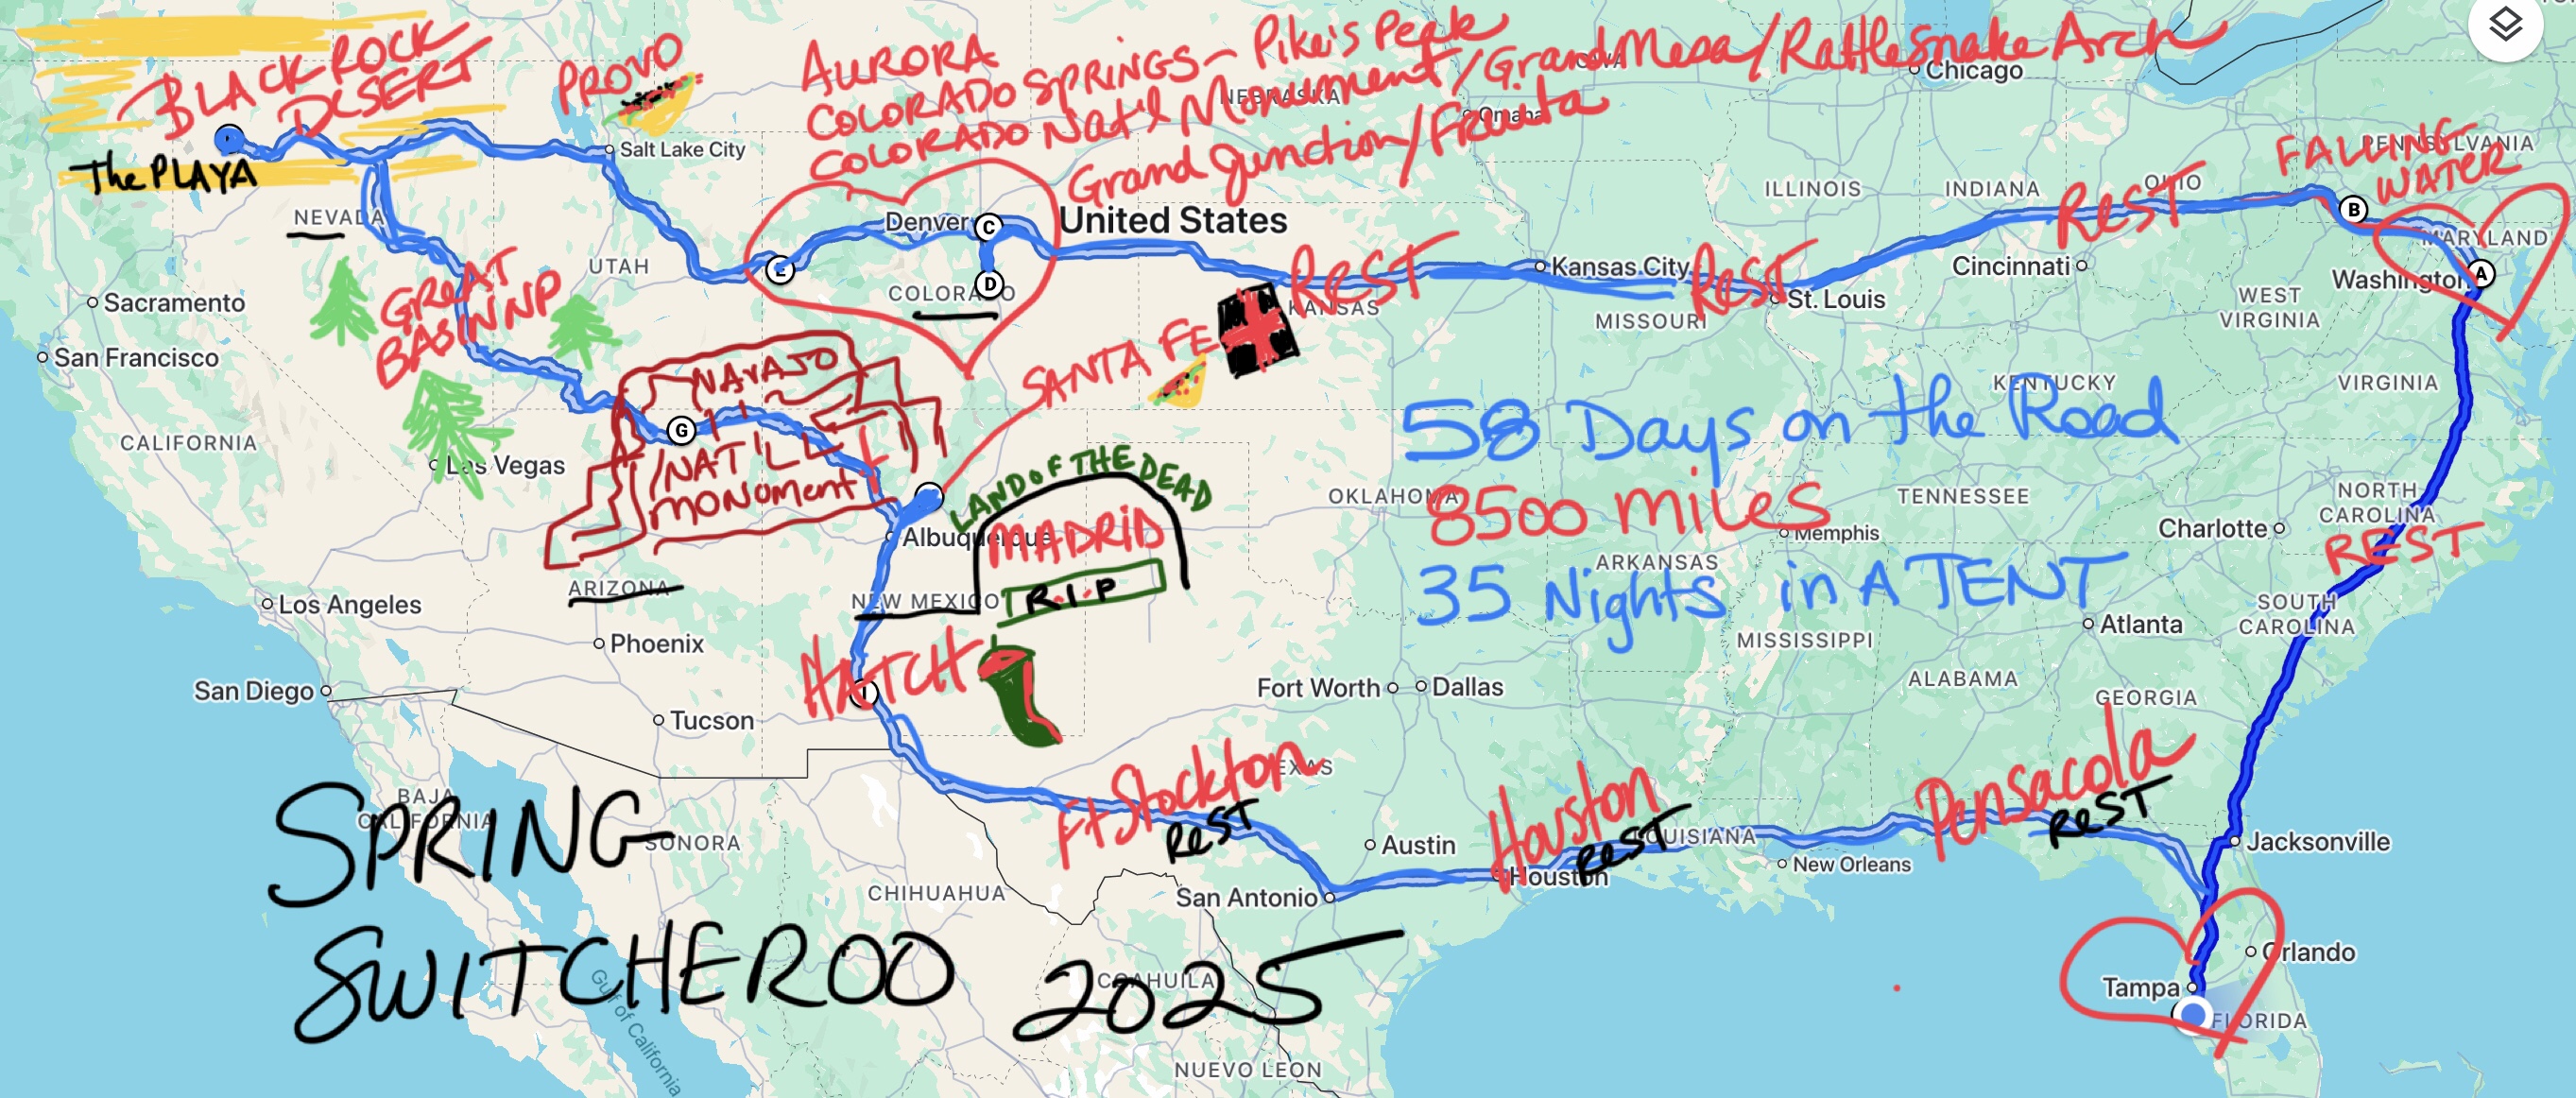 BLACK ROCK
DESERT
The PLAYA
PROVO
AURORA
COLORADO SPRINGS - Pike's Peak
COLORADO Nat'l Monument/Grand Mesa/Rattlesnake Arch
Grand Junction/Fruita
IOWA
Chicago
NEBRASKA
Omaha
Salt Lake City
NEVADA
UTAH
Denver
C
E
D
COLORADO
United States
REST
KANSAS
Kansas City
REST
MISSOURI
St. Louis
ILLINOIS
INDIANA
OHIO
REST
Cincinnati
PENNSYLVANIA
FALLING
WATER
B
MARYLAND
Washington
A
WEST
VIRGINIA
VIRGINIA
KENTUCKY
Sacramento
San Francisco
GREAT
BASIN NP
CALIFORNIA
Las Vegas
NAVAJO
G
NAT'L
MONUMENT
SANTA FE
LAND OF THE DEAD
MADRID
R.I.P
Albuquerque
ARIZONA
NEW MEXICO
58 Days on the Road
8500 miles
35 Nights in A TENT
OKLAHOMA
TENNESSEE
Memphis
ARKANSAS
NORTH
CAROLINA
Charlotte
REST
SOUTH
CAROLINA
Atlanta
MISSISSIPPI
ALABAMA
GEORGIA
Los Angeles
Phoenix
San Diego
Tucson
HATCH
I
Fort Worth
Dallas
Ft Stockton
REST
TEXAS
Austin
San Antonio
Houston
REST
Houston
LOUISIANA
New Orleans
Pensacola
REST
Jacksonville
Orlando
Tampa
FLORIDA
BAJA
CALIFORNIA
SONORA
CHIHUAHUA
COAHUILA
NUEVO LEON
Gulf of California
SPRING
SWITCHEROO 2025